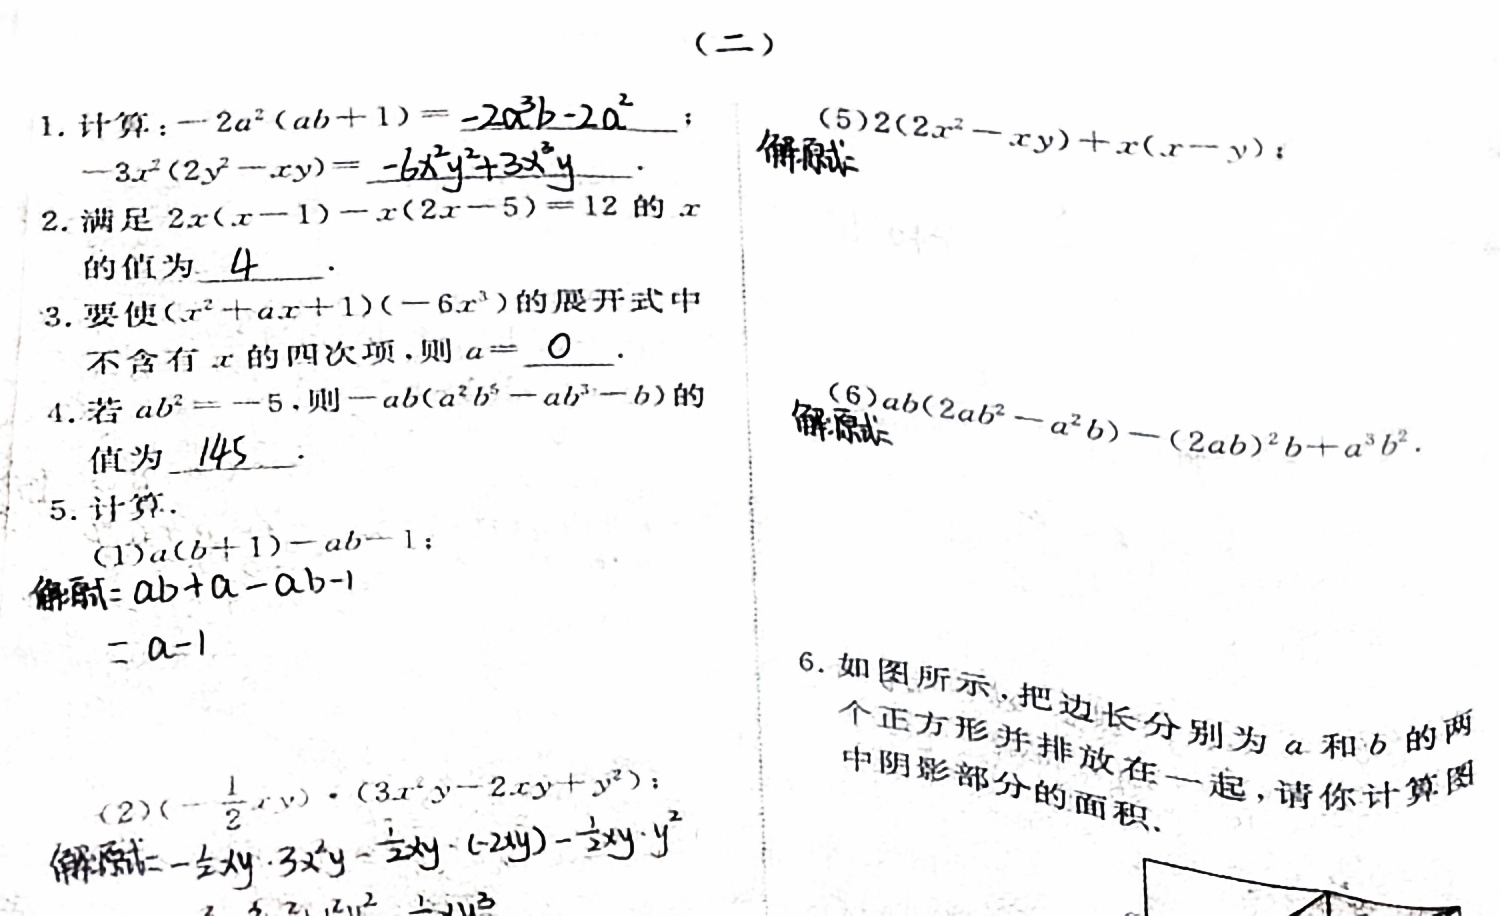 (二)
1. 计算:－2a²(ab＋1)＝ -2a³b-2a² ;
－3x²(2y²－xy)＝ -6x²y²+3x³y .
2. 满足 2x(x－1)－x(2x－5)＝12 的 x
的值为 4 .
3. 要使(x²＋ax＋1)(－6x³)的展开式中
不含有 x 的四次项,则 a＝ 0 .
4. 若 ab²＝－5,则－ab(a²b⁵－ab³－b)的
值为 145 .
5. 计算.
(1)a(b＋1)－ab－1;
解:原式= ab+a-ab-1
= a-1
(2)(－1/2xy)·(3x²y－2xy＋y²);
解:原式= -1/2xy·3x²y-1/2xy·(-2xy)-1/2xy·y²
(5)2(2x²－xy)＋x(x－y);
解:原式=
(6)ab(2ab²－a²b)－(2ab)²b＋a³b².
解:原式=
6. 如图所示,把边长分别为 a 和 b 的两
个正方形并排放在一起,请你计算图
中阴影部分的面积.